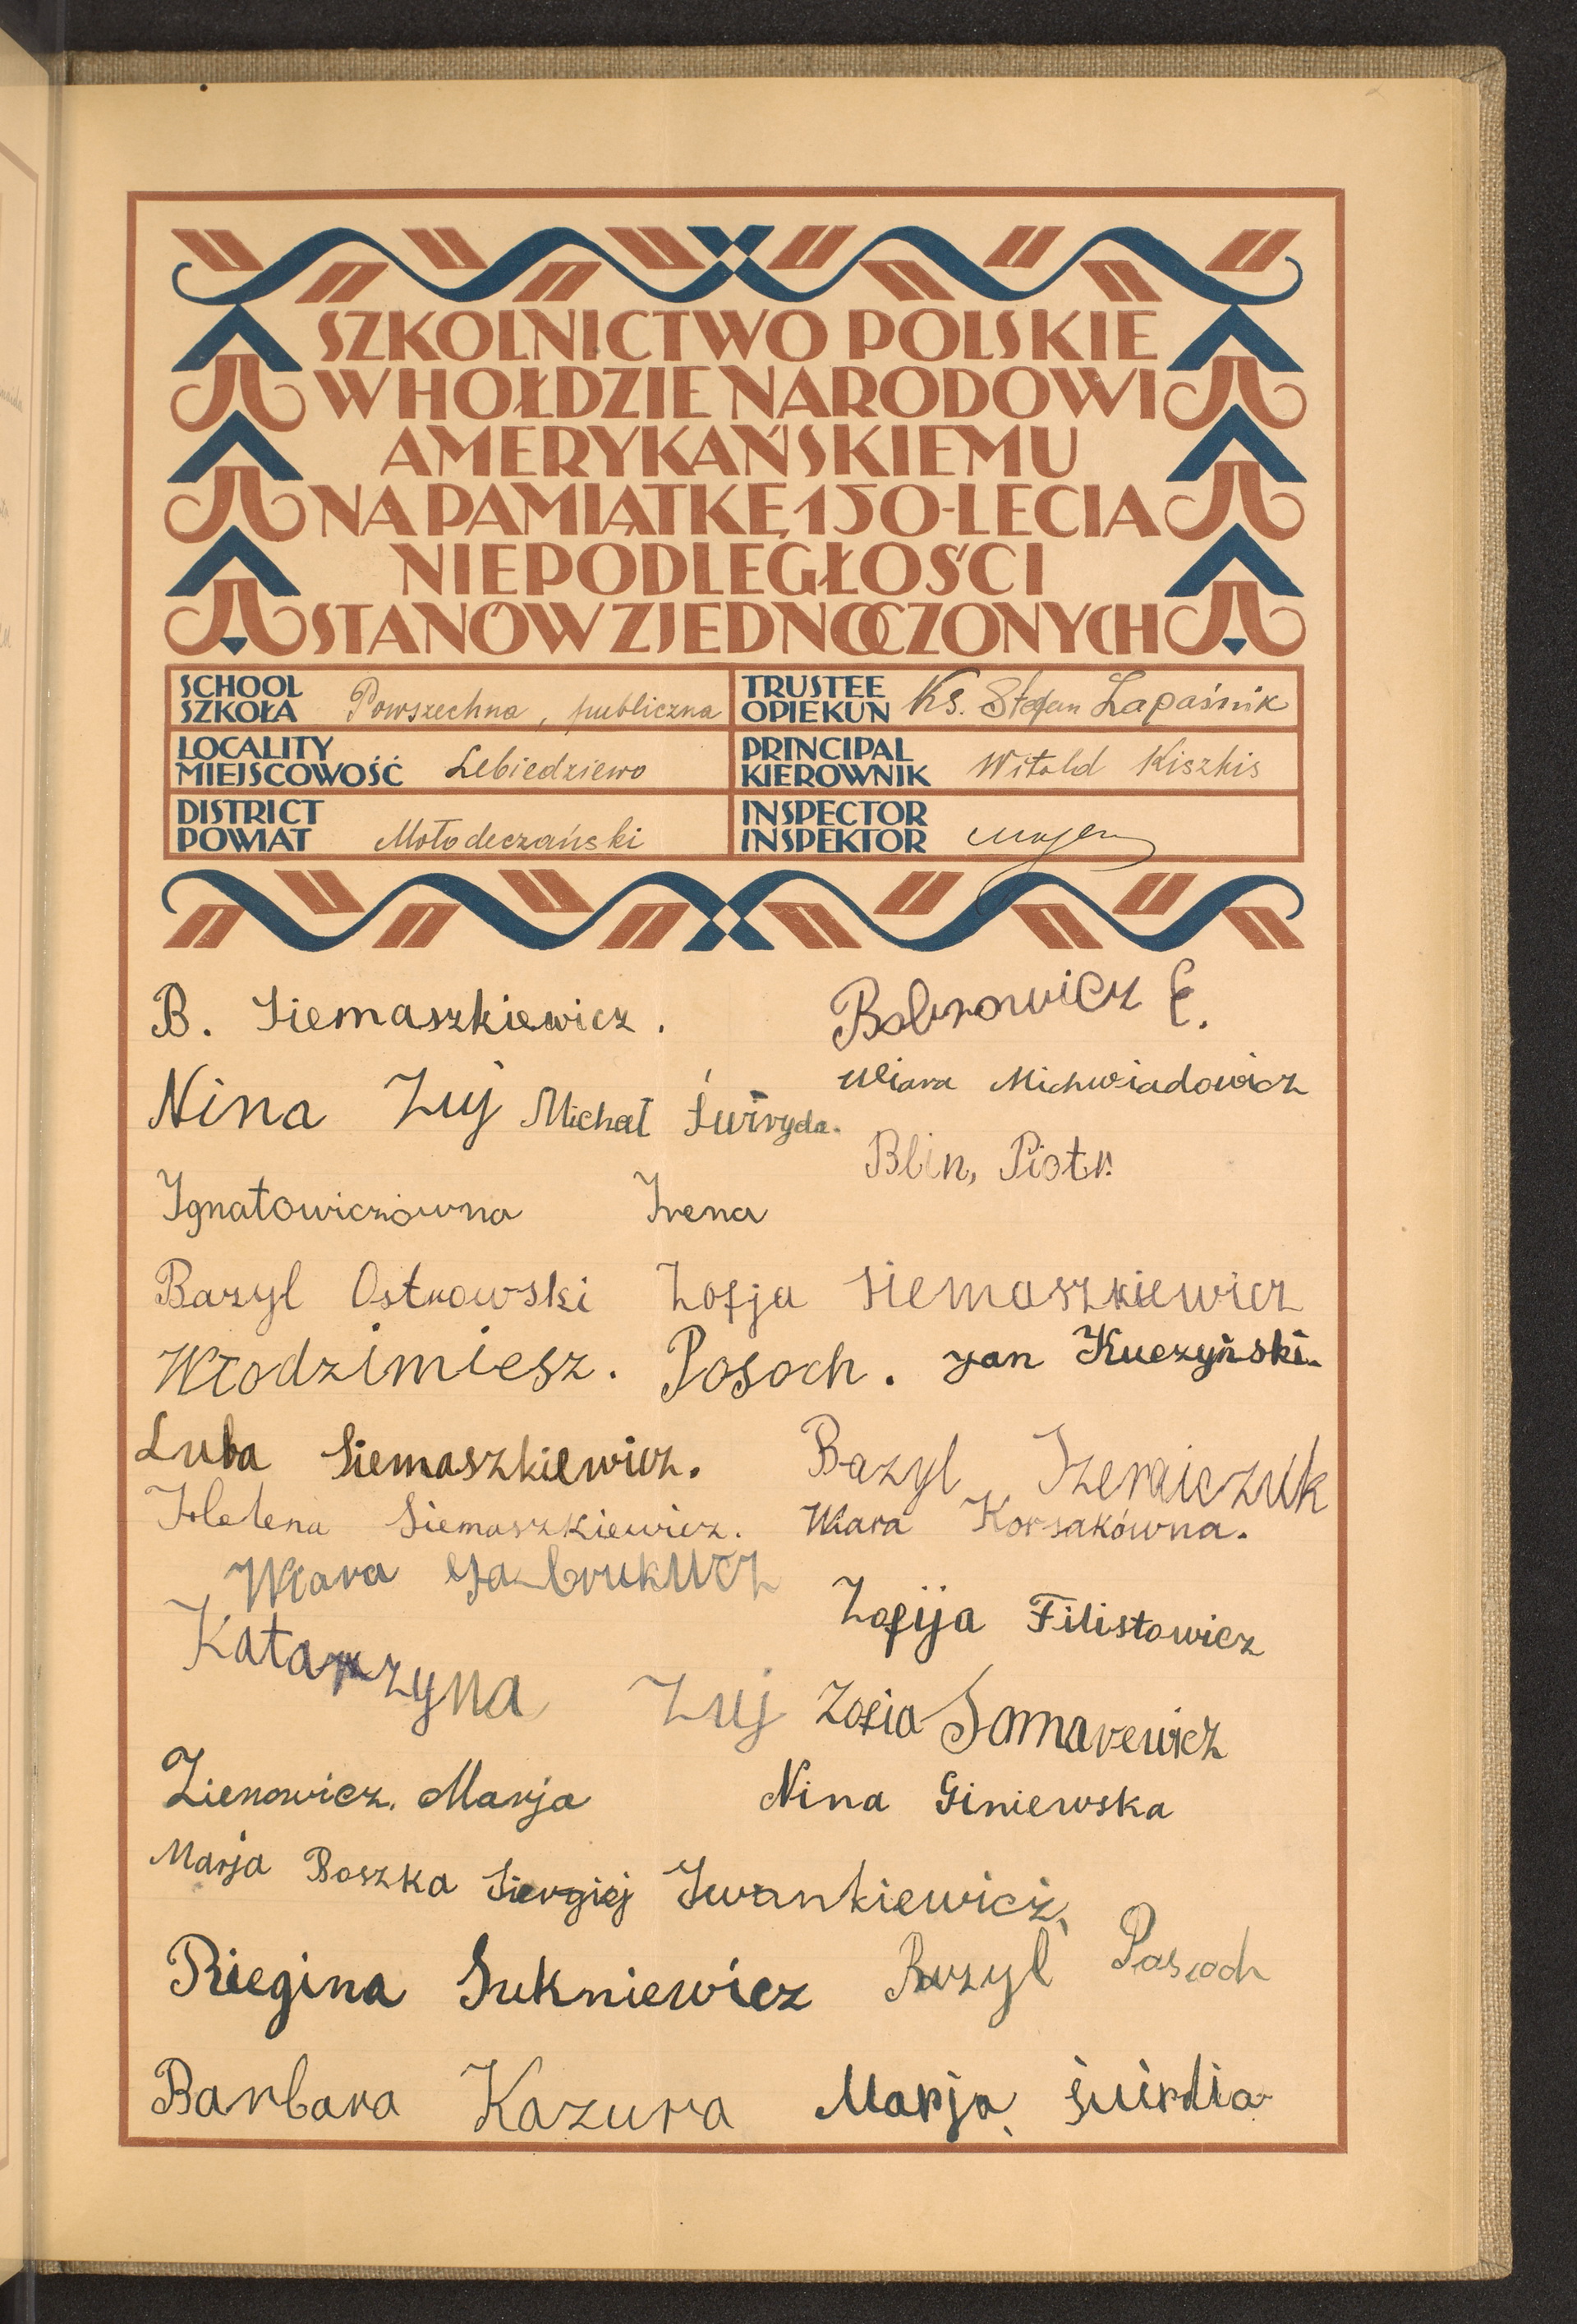 SZKOLNICTWO POLSKIE
W HOŁDZIE NARODOWI
AMERYKAŃSKIEMU
NA PAMIĄTKĘ 150-LECIA
NIEPODLEGŁOŚCI
STANÓW ZJEDNOCZONYCH
SCHOOL
SZKOŁA Powszechna, publiczna
TRUSTEE
OPIEKUN Ks. Stefan Łapaśnik
LOCALITY
MIEJSCOWOŚĆ Lebiedziewo
PRINCIPAL
KIEROWNIK Witold Kiszkis
DISTRICT
POWIAT Mołodeczański
INSPECTOR
INSPEKTOR
B. Siemaszkiewicz.
Bobrowicz E.
Nina Zuj Michał Świryda.
Wiara Michwiadowicz
Blin, Piotr.
Ignatowiczówna Irena
Bazyl Ostrowski Zofja Siemaszkiewicz
Włodzimiesz. Posoch. Jan Kuczyński.
Luba Siemaszkiewicz. Bazyl Szemiczuk
Helena Siemaszkiewicz. Wiara Korsakówna.
Wiara
Zofija Filistowicz
Katarzyna Zuj Zofia Somarewicz
Zienowicz. Marja Nina Giniewska
Marja Boszka Siergiej Iwankiewicz,
Riegina Sukniewicz Bazyl Posoch
Barbara Kazura Marja